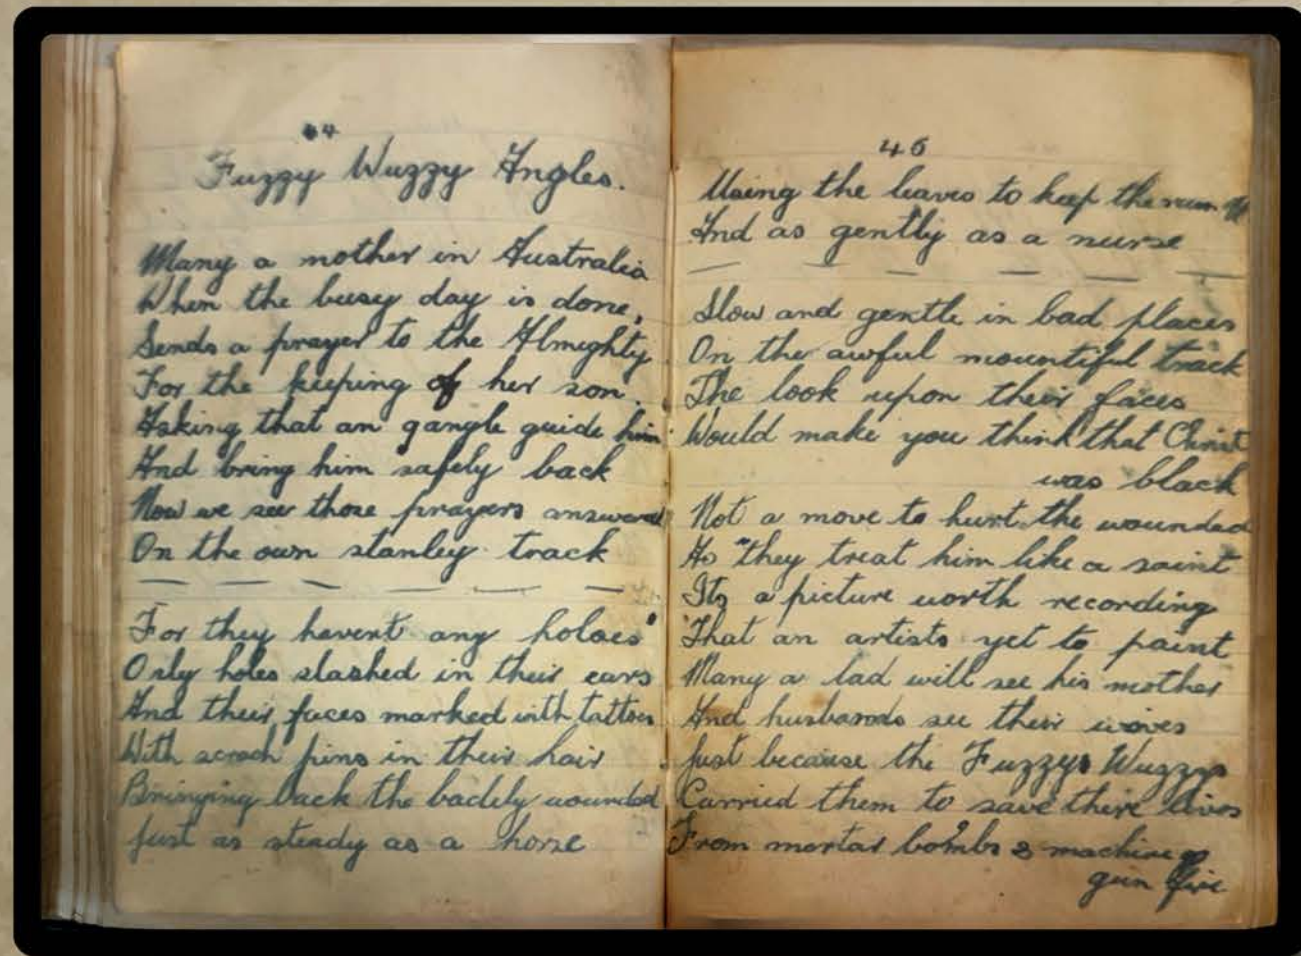 44
Fuzzy Wuzzy Angles.
Many a mother in Australia
When the busy day is done,
Sends a prayer to the Almighty
For the keeping of her son.
Asking that an gangle guide him
And bring him safely back
Now we see those prayers answered
On the own stanley track
For they havent any holoes
Only holes slashed in their ears
And their faces marked with tattoos
With scrach pins in their hair
Bringing back the badely wounded
Just as steady as a horse
46
Using the leaves to keep the
And as gently as a nurse
Slow and gentle in bad places
On the awful mountiful track
The look upon their faces
Would make you think that Christ
was black
Not a move to hurt the wounded
As they treat him like a saint
Its a picture worth recording
That an artists yet to paint
Many a lad will see his mother
And husbands see their wives
Just because the Fuzzys Wuzzys
Carried them to save there lives
From mortar bombs & machine
gun fire